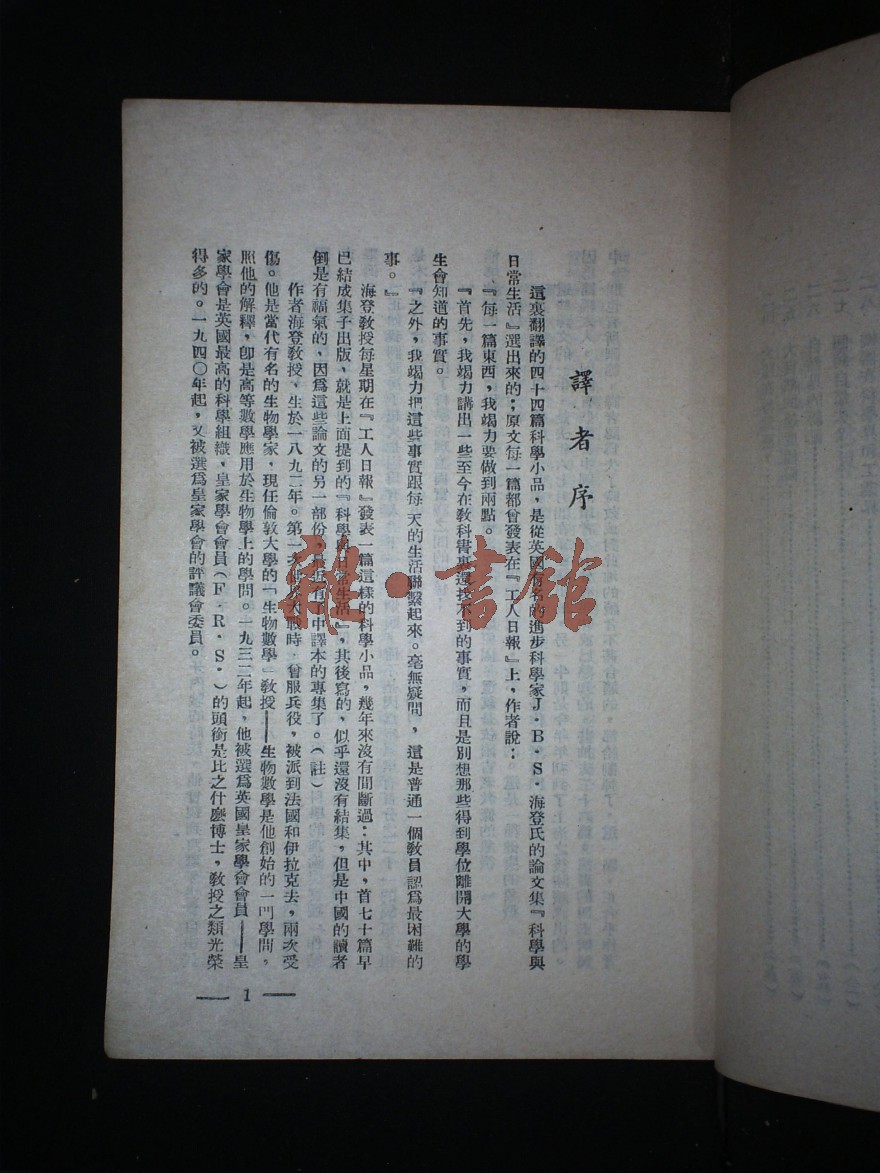 譯者序
這裏翻譯的四十四篇科學小品，是從英國有名的進步科學家J．B．S．海登氏的論文集『科學與
日常生活』選出來的；原文每一篇都曾發表在『工人日報』上，作者說：
『每一篇東西，我竭力要做到兩點。
『首先，我竭力講出一些至今在教科書裏還找不到的事實，而且是別想那些得到學位離開大學的學
生會知道的事實。
『之外，我竭力把這些事實跟每天的生活聯繫起來。毫無疑問，這是普通一個教員認爲最困難的
事。』
海登教授每星期在『工人日報』發表一篇這樣的科學小品，幾年來沒有間斷過：其中，首七十篇早
已結成集子出版，就是上面提到的『科學與日常生活』，其後寫的，似乎還沒有結集，但是中國的讀者
倒是有福氣的，因爲這些論文的另一部份，最近有了中譯本的專集了。（註）
作者海登教授，生於一八九二年。第一次世界大戰時，曾服兵役，被派到法國和伊拉克去，兩次受
傷。他是當代有名的生物學家，現任倫敦大學的『生物數學』教授——生物數學是他創始的一門學問，
照他的解釋，卽是高等數學應用於生物學上的學問。一九三二年起，他被選爲英國皇家學會會員——皇
家學會是英國最高的科學組織，皇家學會會員（F．R．S．）的頭銜是比之什麽博士，教授之類光榮
得多的。一九四〇年起，又被選爲皇家學會的評議會委員。
— 1 —
雜·書館